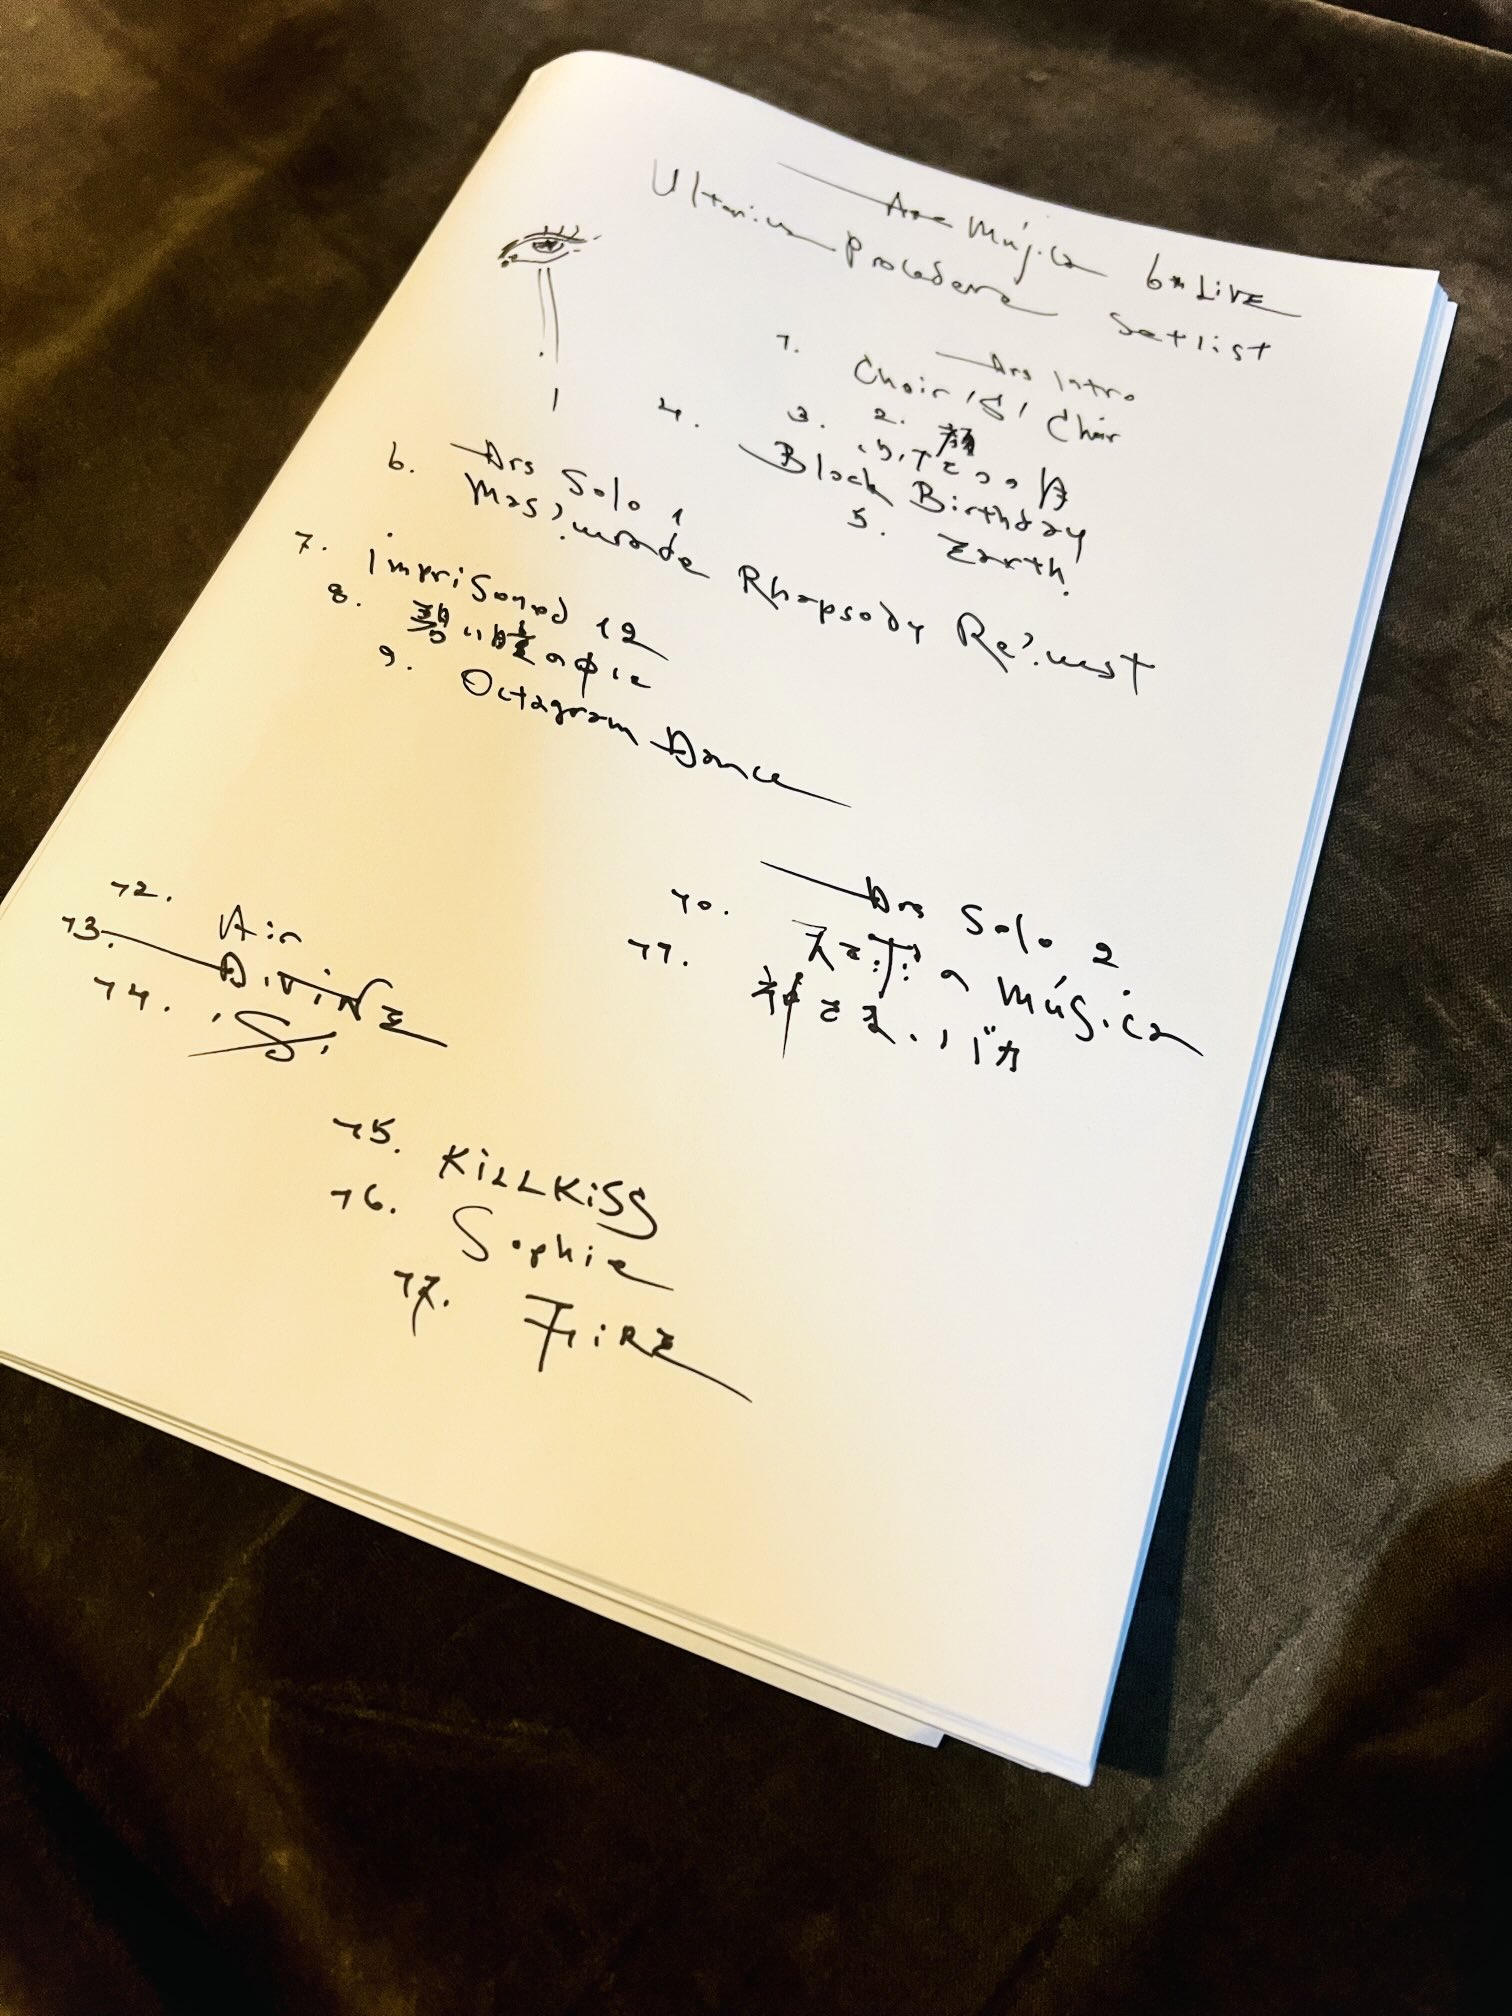 Ave Mújica 6th LIVE
Ulterius Procedere Setlist
Ars Intro
1. Choir 'S' Choir
2. 顔
3. ふたつの月
4. Black Birthday
5. Earth
Ars Solo 1
6. Mas?uerade Rhapsody Re?uest
7. Imprisoned 12
8. 黒い瞳の中に
9. Octagram Dance
Ars Solo 2
10. 天球のMúsica
11. 神さま、バカ
12. Air
13. DIVINE
14. 'S/'
15. KILLKiSS
16. Sophie
17. FIRE